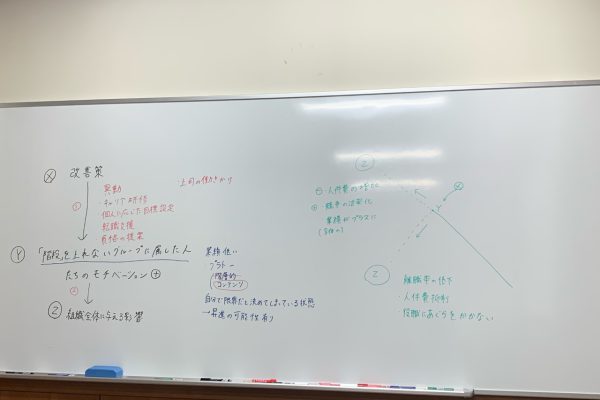 Ⓧ 改善策
異動
・キャリア研修
個人に応じた目標設定
転職支援
資格の提案
・上司の働きかけ
①
Ⓨ 「階段」を上れないグループに属した人
たちのモチベーション ⊕
②
Ⓩ 組織全体に与える影響
業績低い
プラトー
階層的
コンテンツ
自分で限界だと決めてしまっている状態
→昇進の可能性有り
Ⓩ
⊖・人件費の
⊕・競争の活発化
業績がプラスに
Ⓧ
Y
Ⓩ
組織率の低下
・人件費抑制
・役職にあぐらをかかない